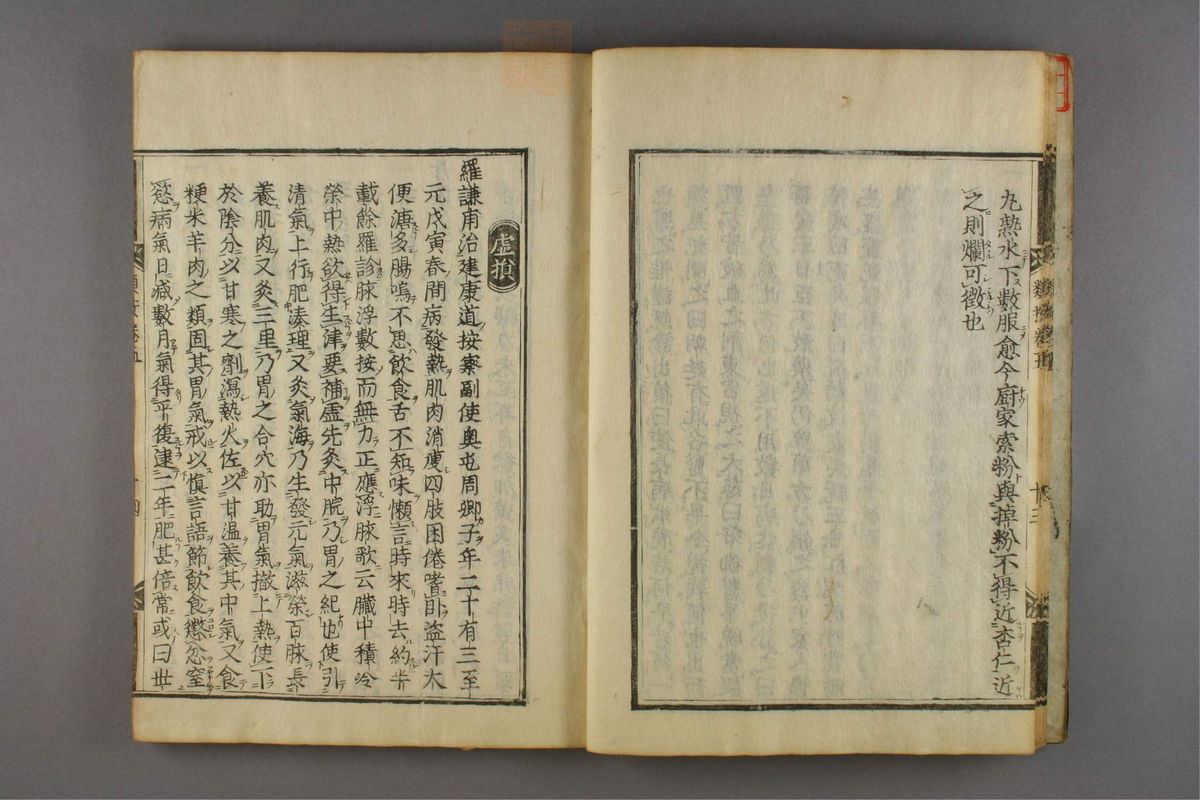 丸熱水下數服愈今廚家索粉與掉粉不得近杏仁近
之則爛可徵也
十三
虛損
羅謙甫治建康道按察副使奥屯周卿子年二十有三至
元戊寅春間病發熱肌肉消瘦四肢困倦嗜臥盜汗大
便溏多腸鳴不思飲食舌不知味懶言時來時去約半
載餘羅診脉浮數按而無力正應浮脉歌云臟中積冷
榮中熱欲得生津要補虛先灸中脘乃胃之紀也使引
清氣上行肥湊理又灸氣海乃生發元氣滋榮百脉長
養肌肉又灸三里乃胃之合穴亦助胃氣撤上熱使下
於陰分以甘寒之劑瀉熱火佐以甘温養其中氣又食
粳米羊肉之類固其胃氣戒以慎言語節飲食懲忿窒
慾病氣日減數月氣得平復逮二年肥甚倍常或曰世
十四